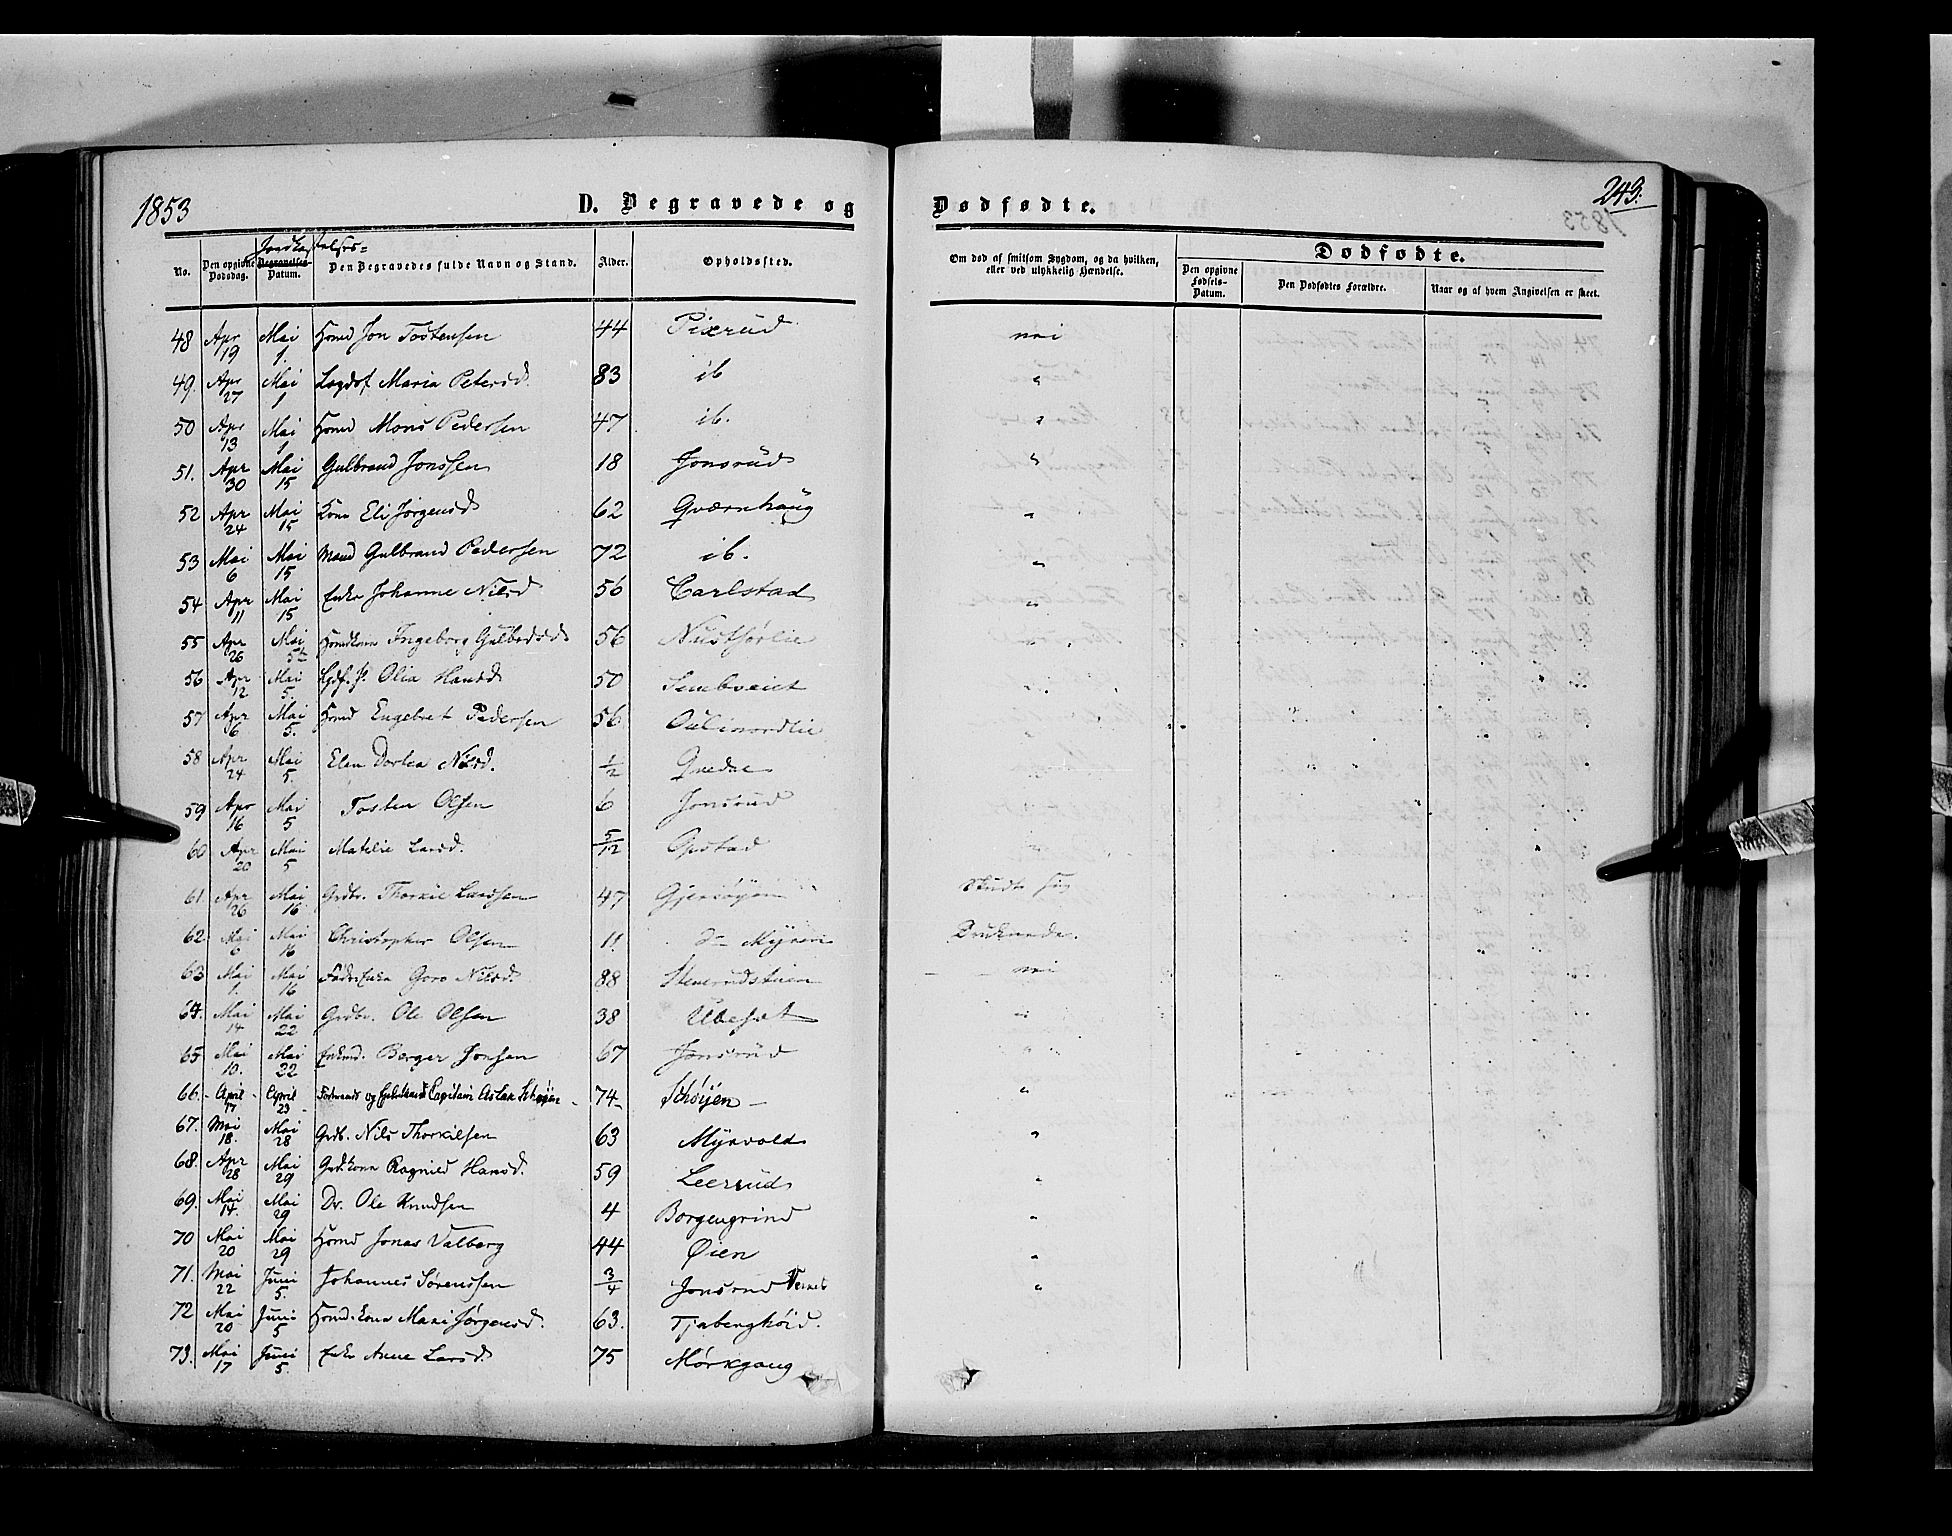 1853
D. Begravede og
Dødfødte.
243.
1853
No. Den opgivne Dødsdag. Jordkastelses= Begravelses Datum. Den Begravedes fulde Navn og Stand. Alder. Opholdsted.
Om død af smitsom Sygdom, og da hvilken, eller ved ulykkelig Hændelse.
Dødfødte.
Den opgivne Fødsels-Datum. Den Dødfødtes Forældre. Naar og af hvem Angivelsen er skeet.
48 Apr 19 Mai 1. Hmd Jon Tostensen 44 Pixrud nei
49. Apr 27 Mai 1 Lægdsf Maria Petersd. 83 ib "
50 Apr 13 Mai 1 Hmd Mons Pedersen 47 ib. "
51. Apr 30 Mai 15 Gulbrand Jonssen 18 Jonsrud "
52 Apr 24 Mai 15 Kone Eli Jørgensd 62 Qværnhaug "
53 Mai 6 Mai 15 Mand Gulbrand Pedersen 72 ib. "
54 Apr 11 Mai 15 Enke Johanne Nilsd 56 Carlstad "
55 Apr 26 Mai 5te Hmdkone Ingeborg Gulbrdsd 56
56 Apr 12 Mai 5. Olia Hansd 50
57 Apr 6 Mai 5. Hmd Engebret Pedersen 56
58 Apr 24 Mai 5. Elen Dortea Nilsd. 1/2
59 Apr 16 Mai 5 Tosten Olsen 6 Jonsrud
60 Apr 20 Mai 5 Matilie Larsd. 5/12 Opstad
61. Apr 26 Mai 16 Grdbr. Thorkil Larssen 47 Skudt sig
62. Mai 6 Mai 16 Christopher Olsen 11 Myren Druknede.
63 Mai 1. Mai 16 Goro Nilsd. 88 Stenerudstuen nei
64. Mai 14 Mai 22 Grdbr. Ole Olsen 38 "
65 Mai 10. Mai 22 Enkmd. Borger Jonsen 67 Jonsrud "
66. April 17 April 23 Formand og Capitain Aslak Schøyen 74 Schøyen "
67. Mai 18. Mai 28 Grdb. Nils Thorkilsen 63 Myrvold "
68. Apr 28 Mai 29 Grdkone Ragnild Hansd. 59 Leerrud "
69. Mai 14. Mai 29 Dr. Ole Knudsen 4 Borgengrind "
70 Mai 20 Mai 29 Hmd Jonas Valberg 44 Øien "
71. Mai 22 Juni 5. Johannes Sørenssen 3/4 Jonsrud "
72 Mai 20 Juni 5 Hmd.kone Mari Jørgensd. 63. Tjaberghøid.
73. Mai 17 Juni 5. Enke Anne Larsd. 75 Mørkgang